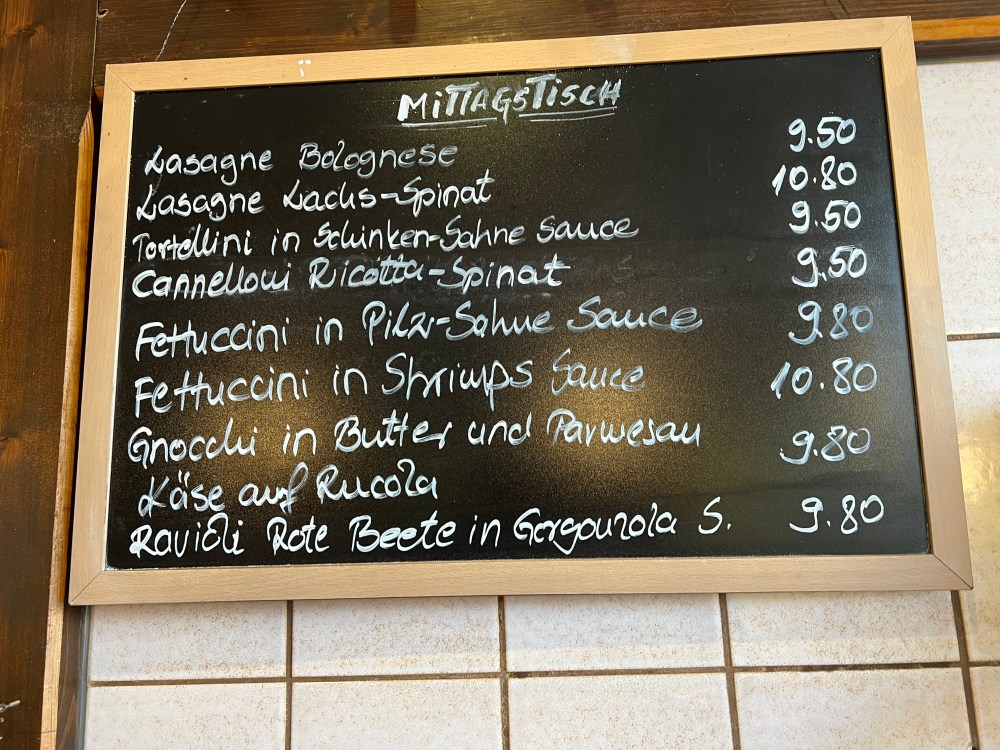 MITTAGSTISCH
Lasagne Bolognese 9.50
Lasagne Lachs-Spinat 10.80
Tortellini in Schinken-Sahne Sauce 9.50
Cannelloni Ricotta-Spinat 9.50
Fettuccini in Pilz-Sahne Sauce 9.80
Fettuccini in Shrimps Sauce 10.80
Gnocchi in Butter und Parmesan 9.80
Käse auf Rucola
Ravioli Rote Beete in Gorgonzola S. 9.80